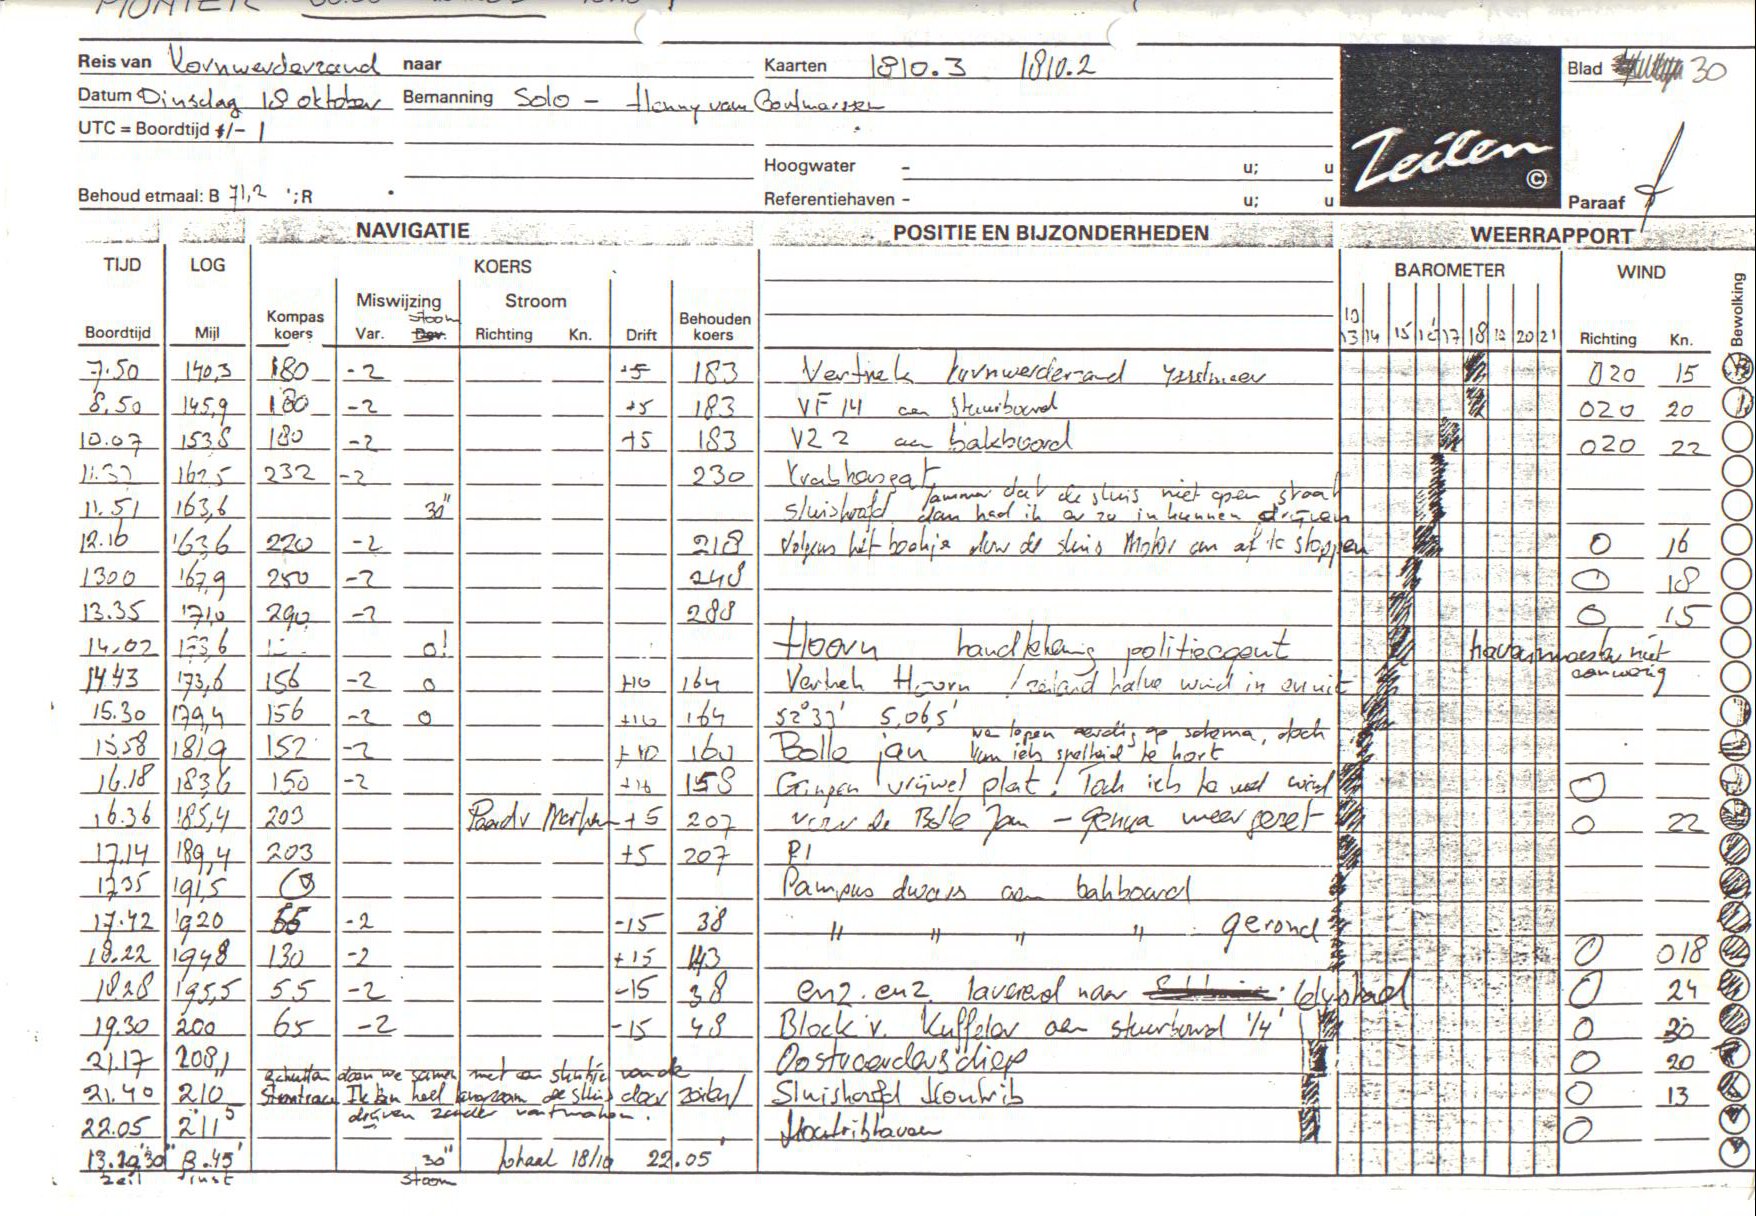 PIONIER
Reis van Kornwerderzand naar
Kaarten 1810.3 1810.2
Blad 30
Datum Dinsdag 18 oktober Bemanning Solo - Henny van
UTC = Boordtijd +/- 1
Hoogwater - u; u
Zeilen ©
Behoud etmaal: B 71,2 '; R
Referentiehaven - u; u
Paraaf
NAVIGATIE POSITIE EN BIJZONDERHEDEN WEERRAPPORT
TIJD LOG KOERS BAROMETER WIND Bewolking
Miswijzing Stroom
Boordtijd Mijl Kompas koers Var. Dev. stoom Richting Kn. Drift Behouden koers 10 13 14 15 16 17 18 19 20 21 Richting Kn.
7.50 140,3 180 -2 +5 183 Vertrek Kornwerderzand Ysselmeer 020 15
8.50 145,9 180 -2 +5 183 VF 14 aan stuurboord 020 20
10.07 153,8 180 -2 +5 183 V22 aan bakboord 020 22
11.37 162,5 232 -2 230 Krabbersgat
11.51 163,6 30" sluishoofd jammer dat de sluis niet open staat
dan had ik er zo in kunnen drijven
12.16 163,6 220 -2 218 Volgens het boekje door de sluis Motor aan af te stoppen O 16
1300 167,9 250 -2 248 O 18
13.35 171,0 290 -2 288 O 15
14.02 173,6 0! Hoorn handtekening politieagent havenmeester niet
aanwezig
14.43 173,6 156 -2 0 +10 164 Vertrek Hoorn /zeilend halve wind in en uit
15.30 179,4 156 -2 0 +10 164 52°33' 5,065'
15.58 181,9 152 -2 +10 160 Bolle jan we lopen aardig op schema, doch
kom iets snelheid te kort
16.18 183,6 150 -2 +10 158 Grijpen vrijwel plat! Toch iets te veel wind O
16.36 185,4 203 Paard v Marken +5 207 voor de Bolle Jan - genua weer gezet O 22
17.14 189,4 203 +5 207 P1
17.35 191,5 Pampus dwars aan bakboord
17.42 192,0 55 -2 -15 38 " " " " gerond
18.22 194,8 130 -2 +15 143 O 018
18.28 195,5 55 -2 -15 38 enz. enz. laverend naar Lelystad O 24
19.30 200 65 -2 -15 48 Block v. Kuffeler aan stuurboord 1/4' O 20
21.17 208,1 Oostvaardersdiep O 20
schutten doen we samen met een skûtsje van de
21.40 210 Stentrace Ik kan heel langzaam de sluis door zeilen/ Sluishoofd Houtrib O 13
drijven zonder vastmaken.
22.05 211,5 Houtribhaven O
13.29'30" 8.45' 30" totaal 18/10 22.05'
zeil rust stoom